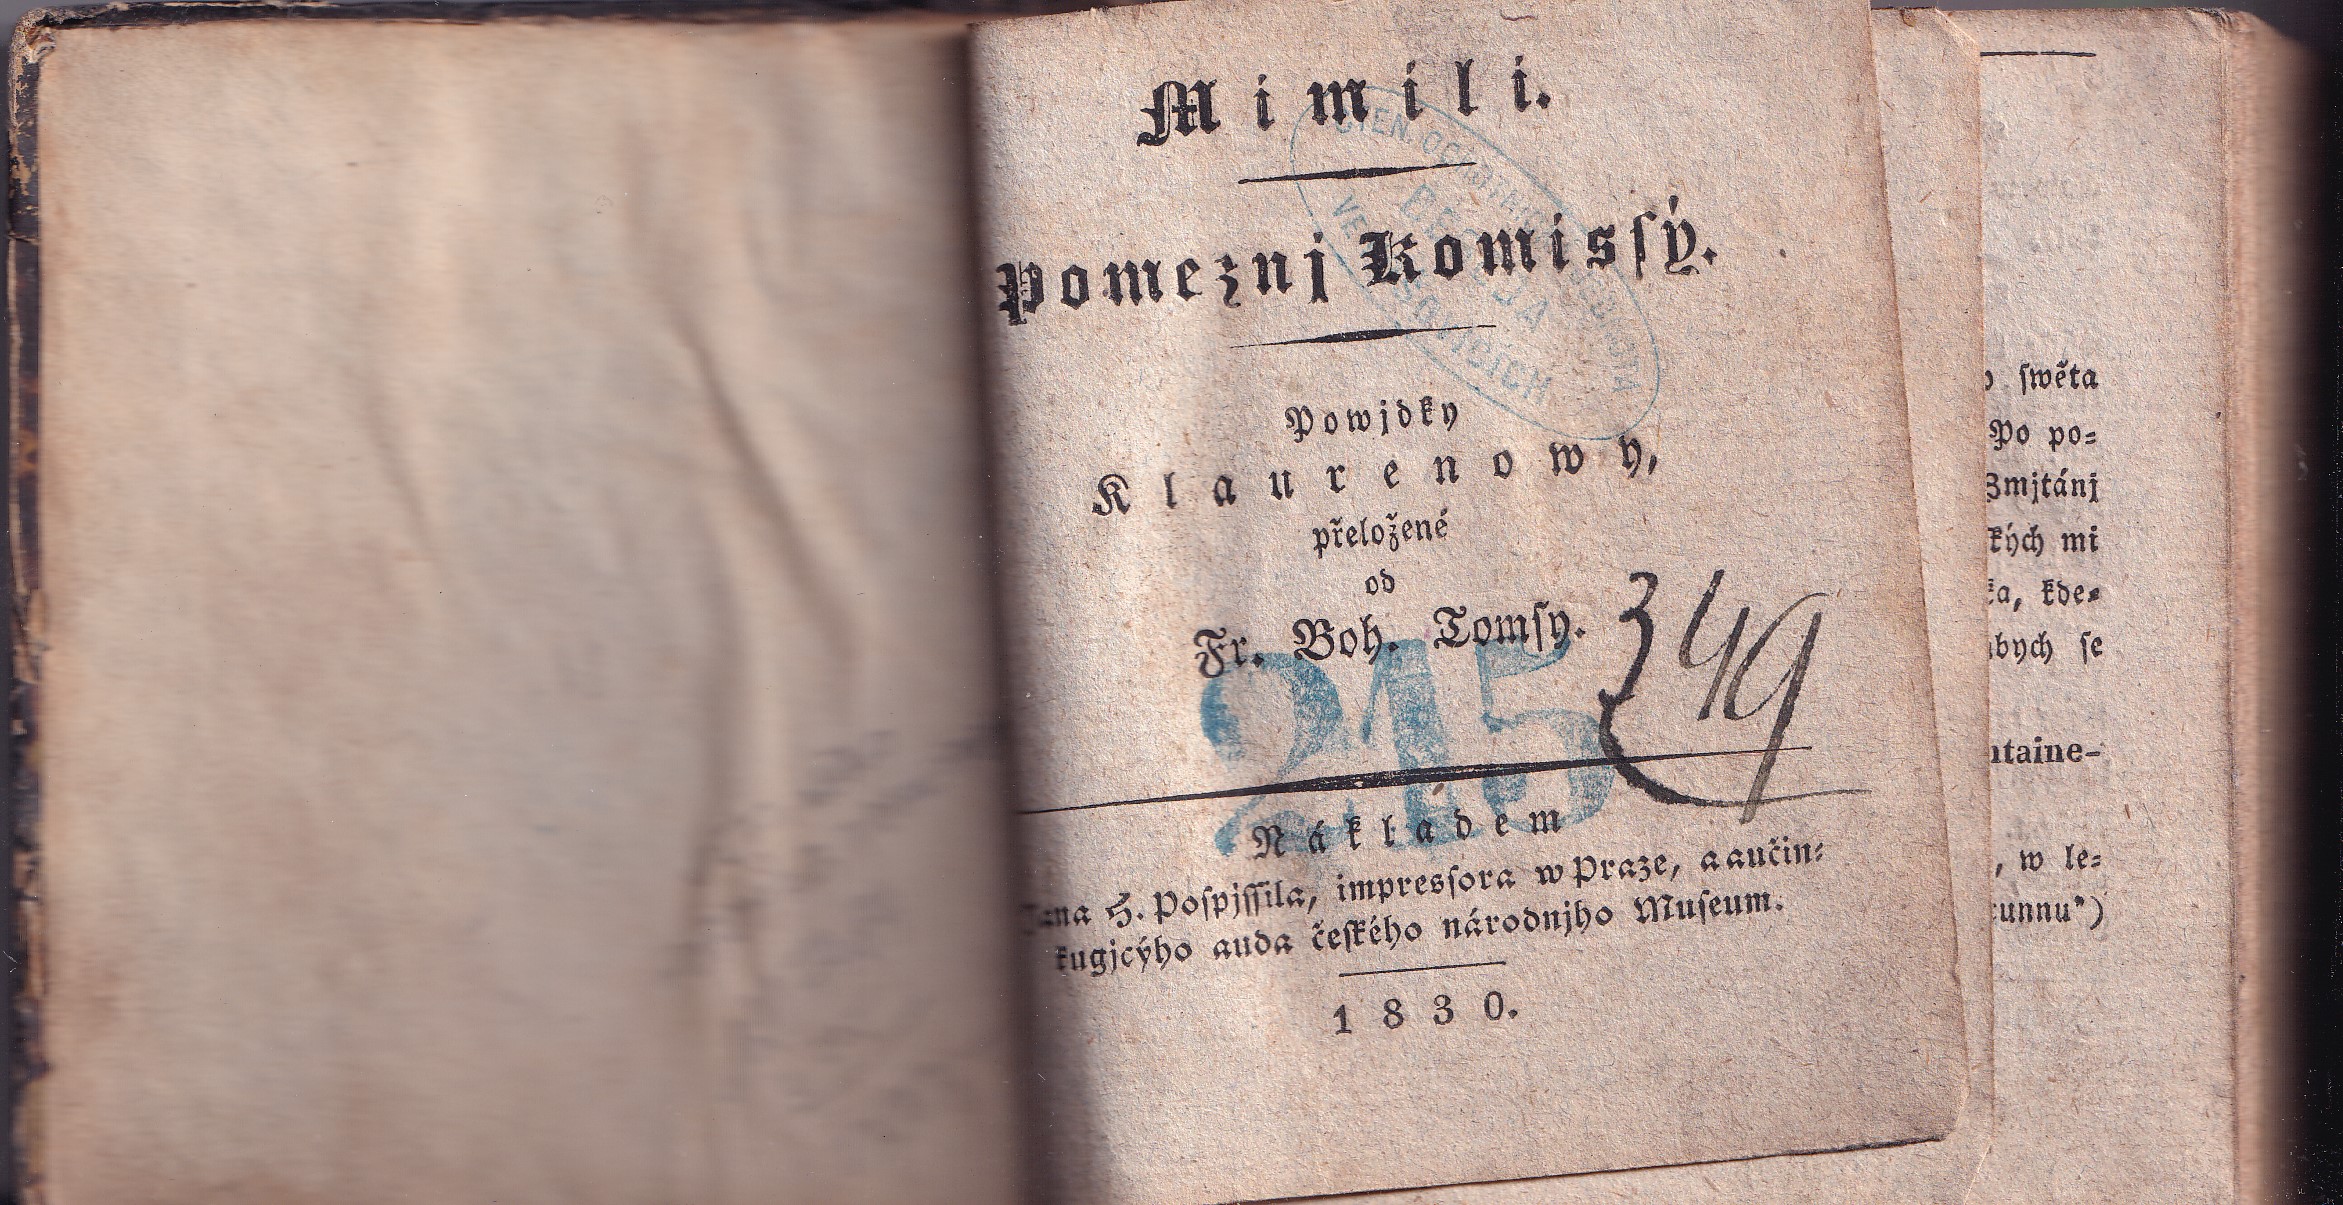 Mimili.
Pomeznj Komissý.
Powjdky
Klaurenowy,
přeložené
od
Fr. Boh. Tomsy.
349
215
Nákladem
Jana H. Pospjssila, impressora w Praze, a aučin-
kugjcýho auda českého národnjho Museum.
1830.
swěta
Po po-
Zmjtánj
kých mi
kde-
bych se
ntaine-
, w le-
unnu*)